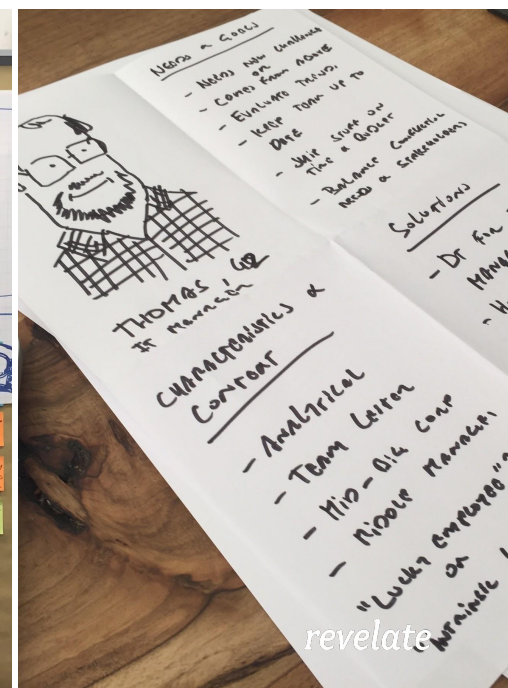 NEEDS & GOALS
- NEEDS NEW CHALLENGES
OR
- COMES FROM ABOVE
- EVALUATE TRENDS,
- KEEP TEAM UP TO
DATE
- SHIP STUFF ON
TIME & BUDGET
- BALANCE
NEEDS & STAKEHOLDERS
SOLUTIONS
- DT FOR
MANAG
THOMAS, 42
IT MANAGER
CHARACTERISTICS &
CONTEXT
- ANALYTICAL
- TEAM LEITER
- MID-BIG CORP
- MIDDLE MANAGER,
"LUCKY EMPLOYEE"
OR
revelate